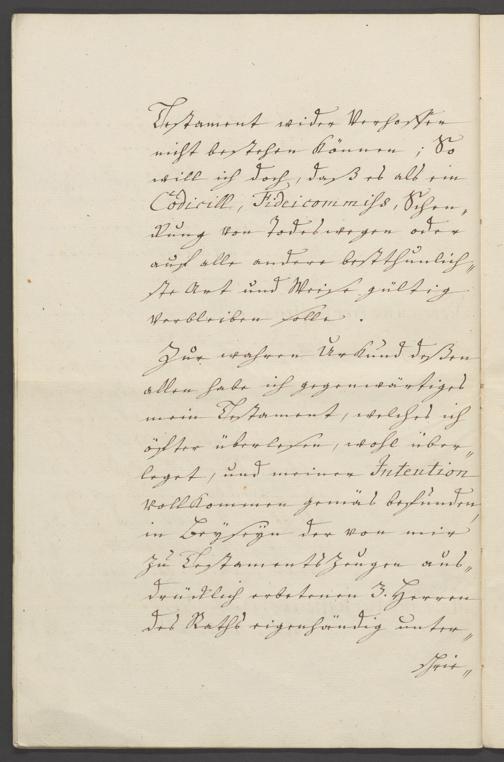 Testament wider Verhoffen
nicht bestehen können ; So
will ich doch, daß es als ein
Codicill, Fideicommiss, Schen„
kung von Todeswegen oder
auf alle andere bestthunlich„
ste Art und Weise gültig
verbleiben solle .
Zur wahren Urkund deßen
allen habe ich gegenwärtiges
mein Testament, welches ich
öfter überlesen, wohl über„
leget, und meiner Intention
vollkommen gemäs befunden,
in Beyseyn der von mir
zu Testaments Zeugen aus„
drücklich erbetenen 3. Herren
des Raths eigenhändig unter„
schrie„